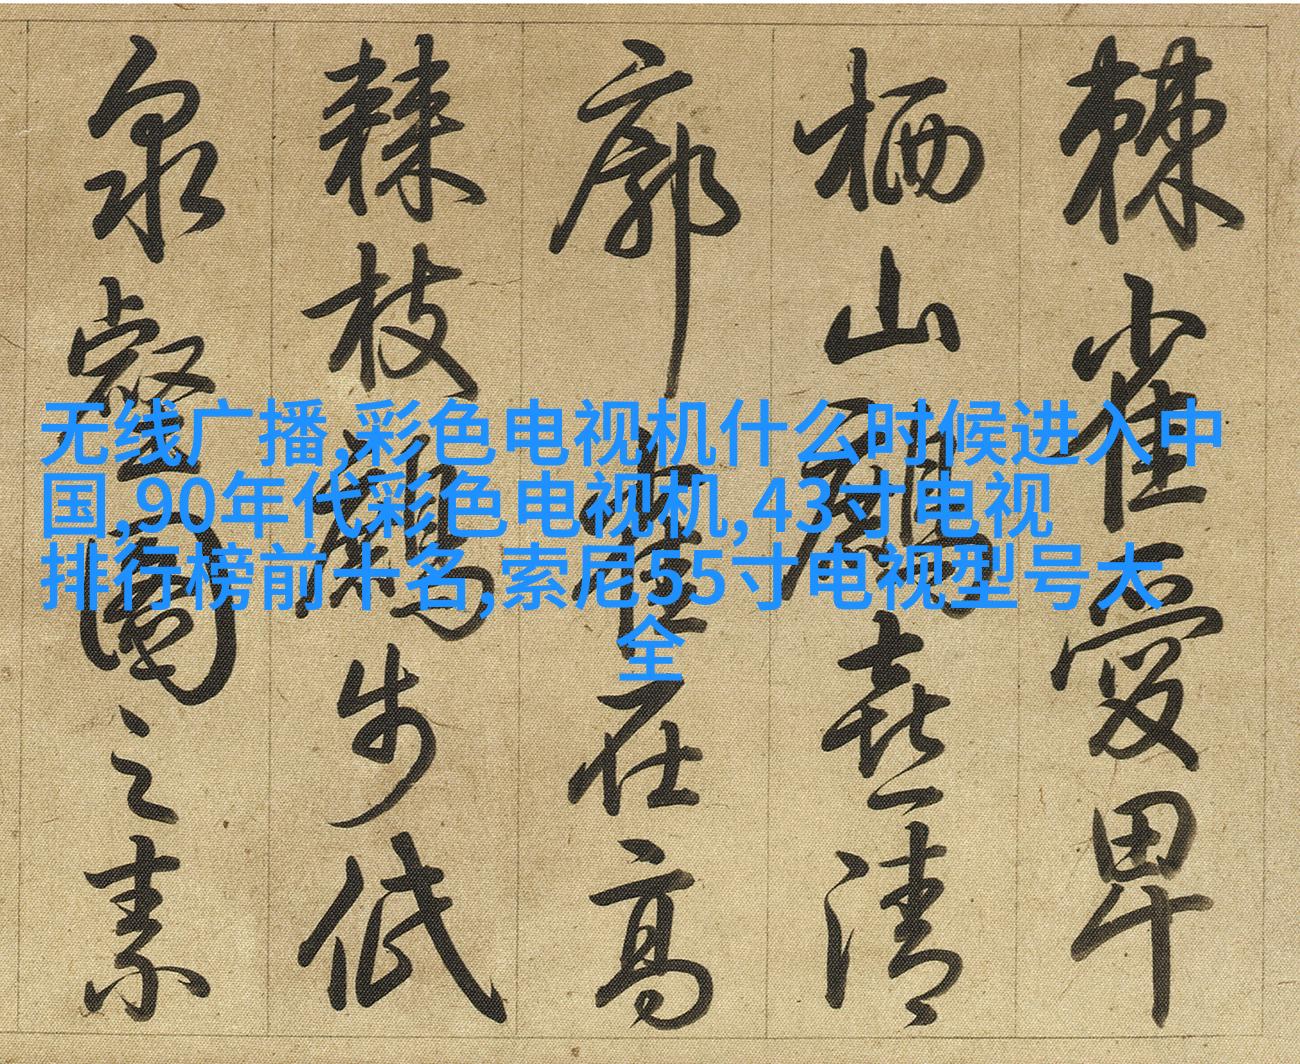 棘雀愛卑
栖山喜清
廓在高
棘枝步低
泉壑之素
无线广播,彩色电视机什么时候进入中
国,90年代彩色电视机,43寸电视
排行榜前十名,索尼55寸电视型号大
全